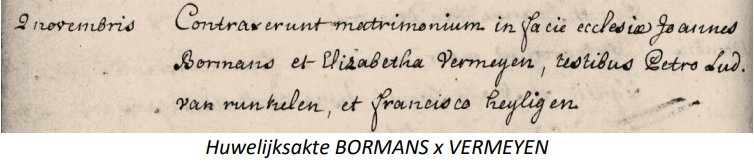 2 novembris Contraxerunt matrimonium in facie ecclesiæ Joannes
Bormans et Elizabetha Vermeyen, testibus Petro Lud.
van runkelen, et francisco heyligen
Huwelijksakte BORMANS x VERMEYEN